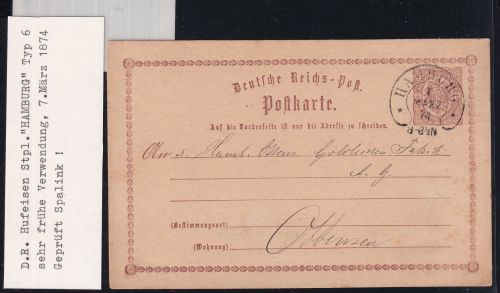 D.R. Hufeisen Stpl."HAMBURG" Typ 6
sehr frühe Verwendung, 7.März 1874
Geprüft Spalink !
Deutsche Reichs-Post.
Postkarte.
Auf die Vorderseite ist nur die Adresse zu schreiben.
HAMBURG
7
MÄRZ
74
An d. Hamb.
A. G.
(Bestimmungsort)
Ottensen
(Wohnung)